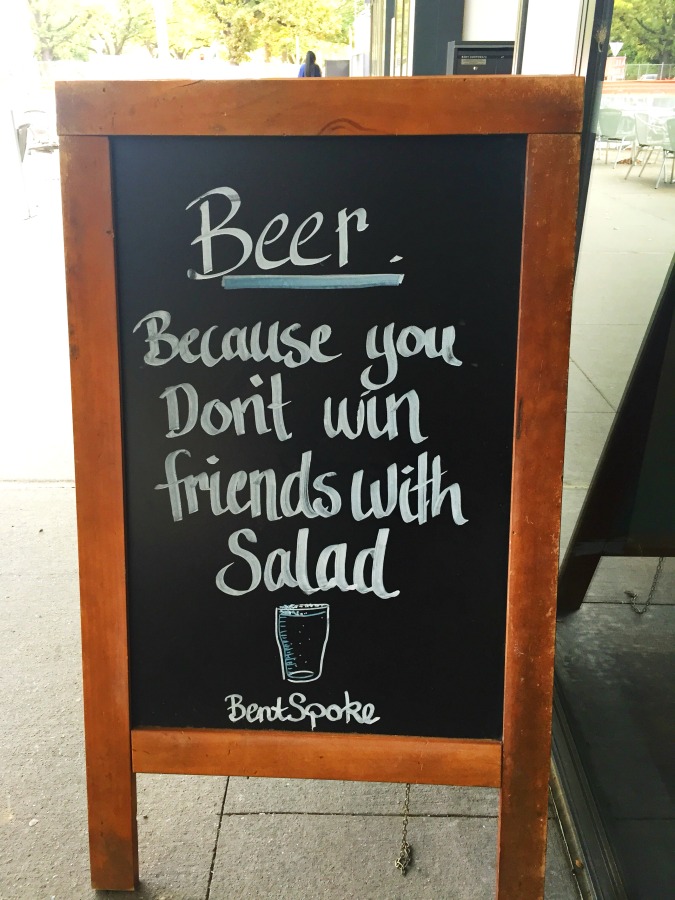 Beer.
Because you
Don't win
friends with
Salad
BentSpoke